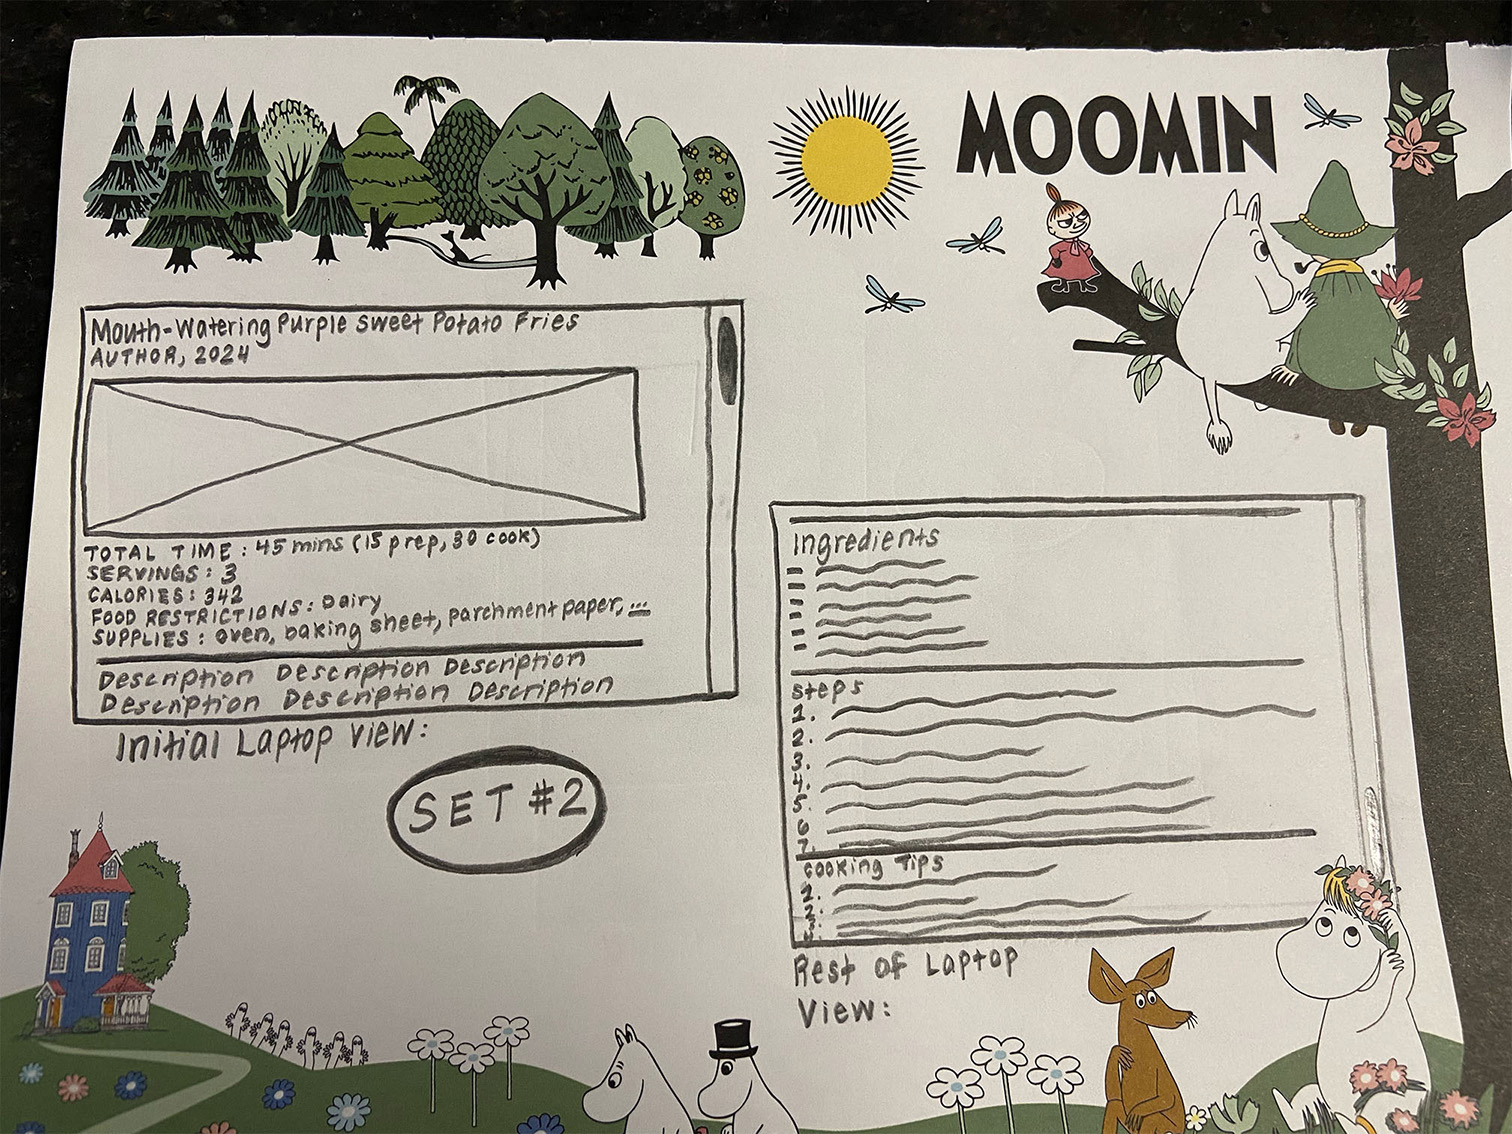 MOOMIN
Mouth-Watering Purple Sweet Potato Fries
AUTHOR, 2024
TOTAL TIME: 45 mins (15 prep, 30 cook)
SERVINGS: 3
CALORIES: 342
FOOD RESTRICTIONS: Dairy
SUPPLIES: oven, baking sheet, parchment paper, ...
Description Description Description
Description Description Description
Initial Laptop View:
SET #2
Ingredients
Steps
1.
2.
3.
4.
5.
6
7.
Cooking Tips
1.
2.
3.
Rest of Laptop
View: